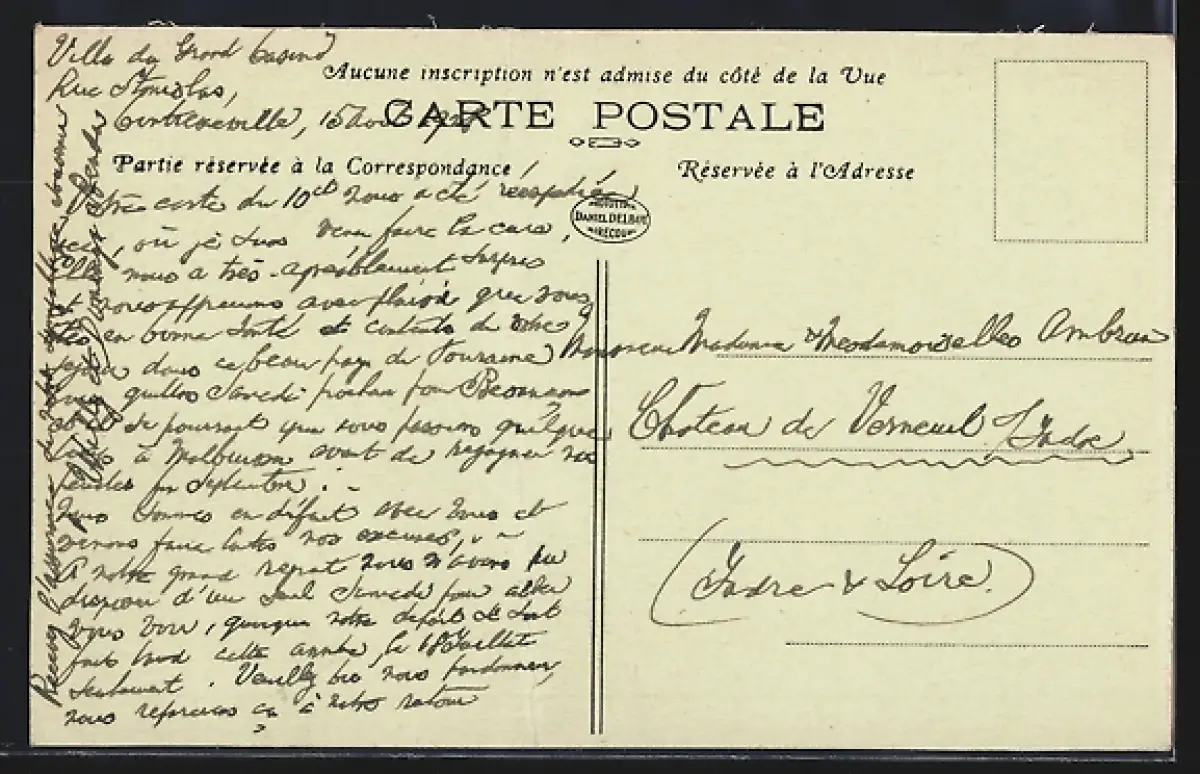 Villa du Grand Casino
Rue Stanislas,
Contrexéville, 15 Août
Aucune inscription n'est admise du côté de la Vue
CARTE POSTALE
Partie réservée à la Correspondance
Réservée à l'Adresse
DANIEL DELBOY
MIRECOURT
Votre carte du 10ct nous a été réexpédiée
ici, où je suis venu faire la cure,
Elle nous a très agréablement surpris
et nous apprenons avec plaisir que vous
êtes en bonne santé et contents de votre
séjour dans ce beau pays de Touraine
quittons Samedi prochain pour Besançons
se pourrait que nous passions quelques
à Malbuisson avant de regagner nos
pénates fin Septembre. -
Nous sommes en défaut avec vous et
venons faire toutes nos excuses,
A notre grand regret nous n'avons pu
disposer d'un seul Samedi pour aller
vous voir, quoique notre départ se soit
fait tard cette année, le 18 Juillet
seulement. Veuillez bien nous pardonner,
nous reparerons ça à notre retour
Recevez l'assurance de notre meilleur souvenir
Monsieur Madame & Mesdemoiselles
Château de Verneuil s/Indre
(Indre & Loire)